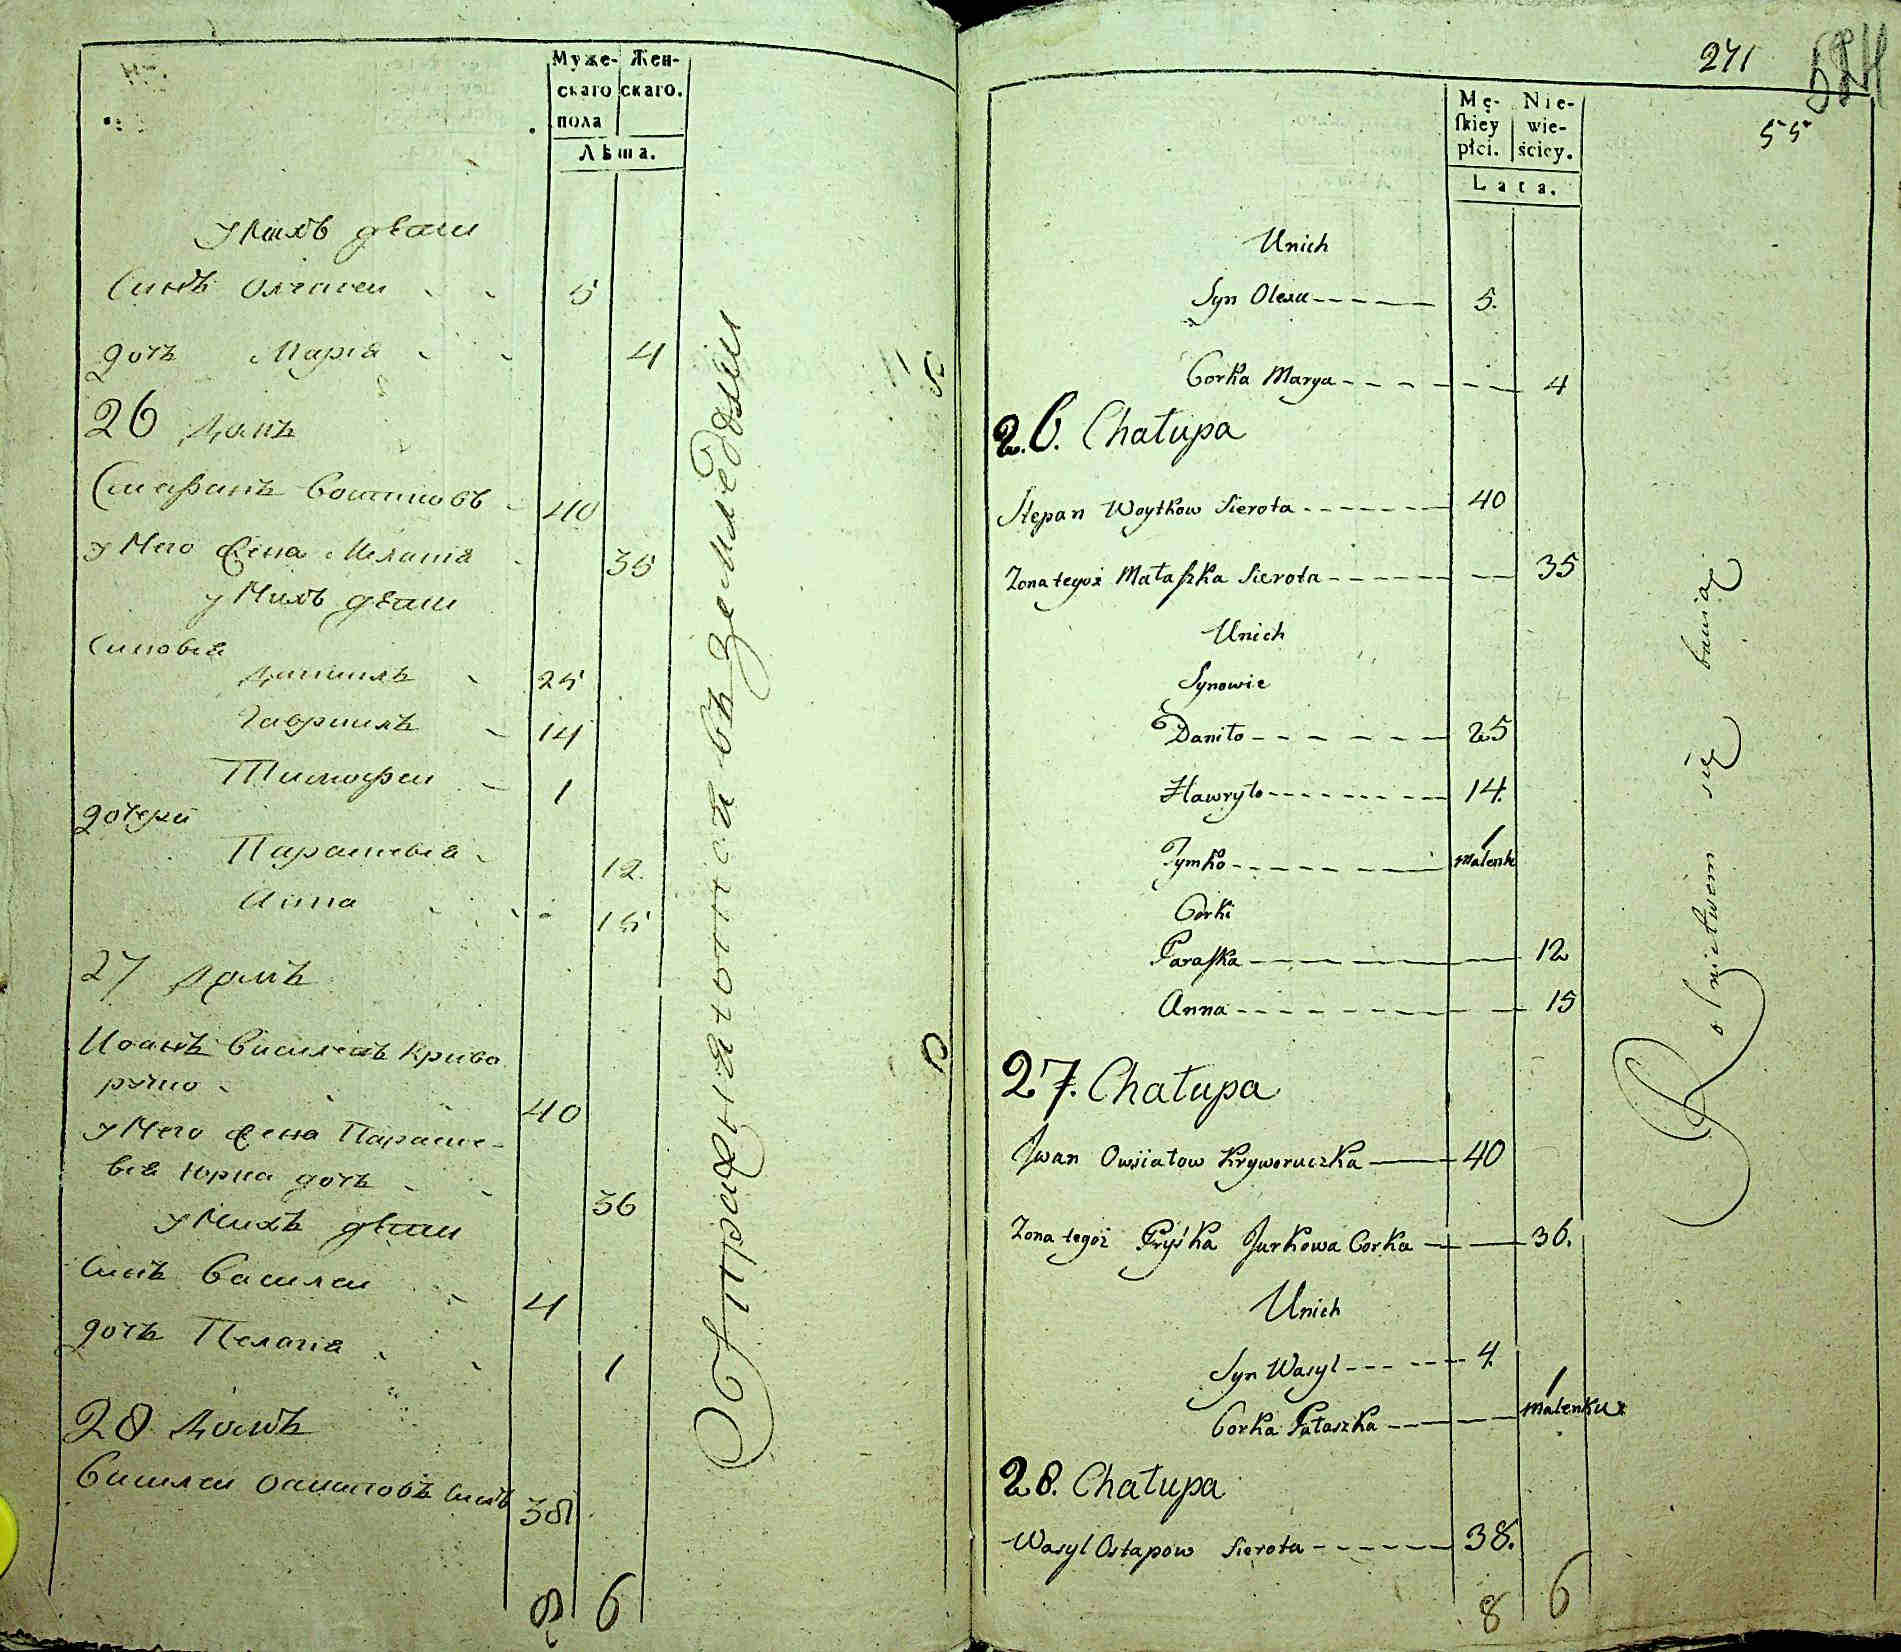 Муже- Жен-
скаго скаго.
пола
Лѣта.
у Нихъ дѣти
Синъ Олексей 5
дочъ Мария 4
26 Домъ
Стефанъ Войтковъ 40
у Него жена Мелания 35
у Нихъ дѣти
Синовья
Даниилъ 25
Гавриилъ 14
Тимофей 1
дочери
Парасковья 12.
Анна 15
27 Домъ
Иоанъ Василевъ Криво
ручко
40
у Него жена Параске-
вья Юрка дочъ 36
у Нихъ дѣти
Синъ Василей 4
дочъ Пелагия 1
28 Домъ
Василей Остаповъ Синъ 38
8 6
Упражняются въ земледѣлии
271 524
55
Mę- Nie-
skiey wie-
płci. ściey.
Lata.
Unich
Syn Olexa 5.
Corka Marya 4
26. Chałupa
Stepan Woytkow Sierota 40
Zona tegoż Małaszka Sierota 35
Unich
Synowie
Daniło 25
Hawryło 14.
Tymko 1
malenk
Corki
Paraska 12
Anna 15
27. Chałupa
Jwan Owsiatow Kryworuczka 40
Zona tegoż Pryśka Jurkowa Corka 36.
Unich
Syn Wasyl 4.
Corka Pałaszka 1
malenkux
28. Chałupa
Wasyl Ostapow Sierota 38.
8 6
Rolnictwem się bawią